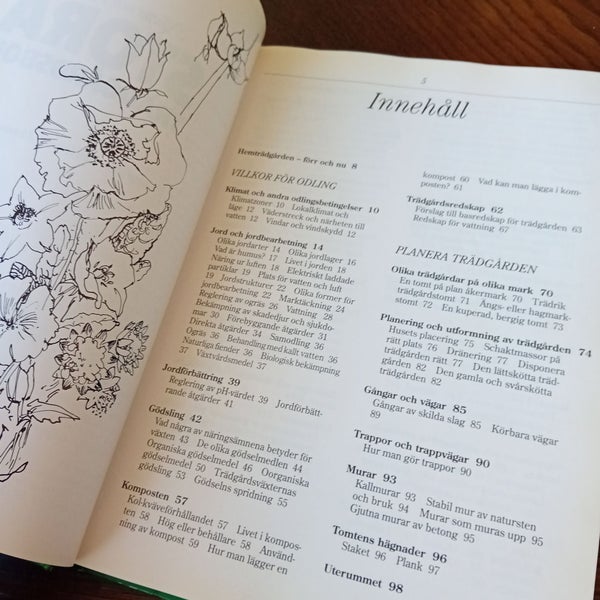 5
Innehåll
Hemträdgården – förr och nu 8
VILLKOR FÖR ODLING
Klimat och andra odlingsbetingelser 10
Klimatzoner 10 Lokalklimat och
läge 12 Väderstreck och närheten till
vatten 12 Vindar och vindskydd 12
Jord och jordbearbetning 14
Olika jordarter 14 Olika jordlager 16
Vad är humus? 17 Livet i jorden 18
Näring ur luften 18 Elektriskt laddade
partiklar 19 Plats för vatten och luft
19 Jordstrukturer 22 Olika former för
jordbearbetning 22 Marktäckning 24
Reglering av ogräs 26 Vattning 28
Bekämpning av skadedjur och sjukdo-
mar 30 Förebyggande åtgärder 31
Direkta åtgärder 34 Samodling 36
Ogräs 36 Behandling med kallt vatten 36
Naturliga fiender 36 Biologisk bekämpning
37 Växtvårdsmedel 37
Jordförbättring 39
Reglering av pH-värdet 39 Jordförbätt-
rande åtgärder 41
Gödsling 42
Vad några av näringsämnena betyder för
växten 43 De olika gödselmedlen 44
Organiska gödselmedel 46 Oorganiska
gödselmedel 50 Trädgårdsväxternas
gödsling 53 Gödselns spridning 55
Komposten 57
Kol-kväveförhållandet 57 Livet i kompos-
ten 58 Hög eller behållare 58 Använd-
ning av kompost 59 Hur man lägger en
kompost 60 Vad kan man lägga i kom-
posten? 61
Trädgårdsredskap 62
Förslag till basredskap för trädgården 63
Redskap för vattning 67
PLANERA TRÄDGÅRDEN
Olika trädgårdar på olika mark 70
En tomt på plan åkermark 70 Trädrik
trädgårdstomt 71 Ängs- eller hagmark-
stomt 72 En kuperad, bergig tomt 73
Planering och utformning av trädgården 74
Husets placering 75 Schaktmassor på
rätt plats 76 Dränering 77 Disponera
trädgården rätt 77 Den lättskötta träd-
gården 82 Den gamla och svårskötta
trädgården 82
Gångar och vägar 85
Gångar av skilda slag 85 Körbara vägar
89
Trappor och trappvägar 90
Hur man gör trappor 90
Murar 93
Kallmurar 93 Stabil mur av natursten
och bruk 94 Murar som muras upp 95
Gjutna murar av betong 95
Tomtens hägnader 96
Staket 96 Plank 97
Uterummet 98